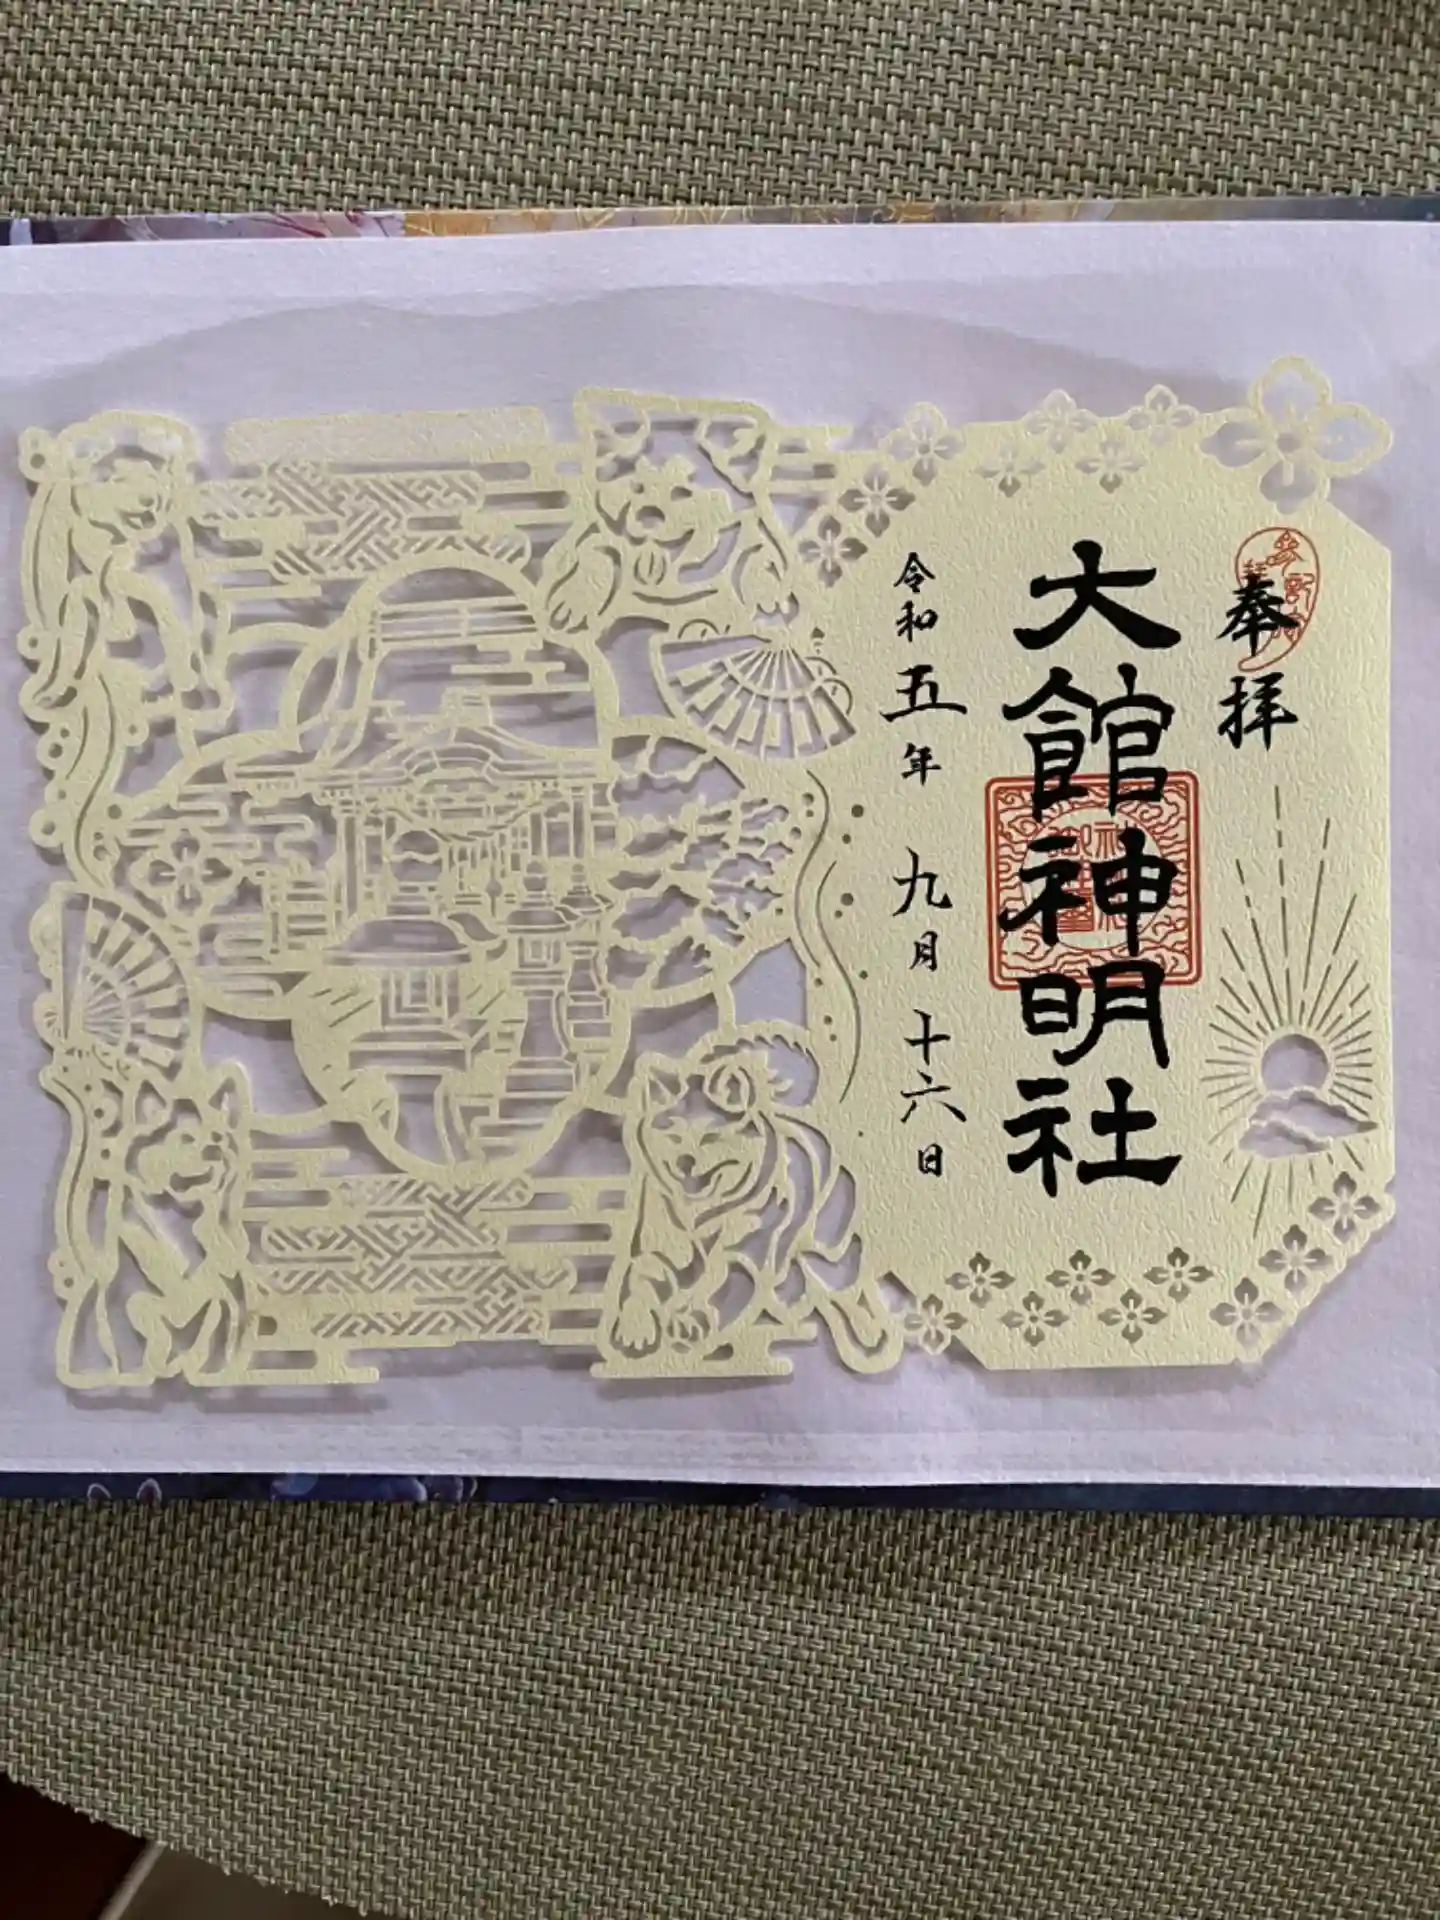 奉拝
大館神明社
令和五年九月十六日